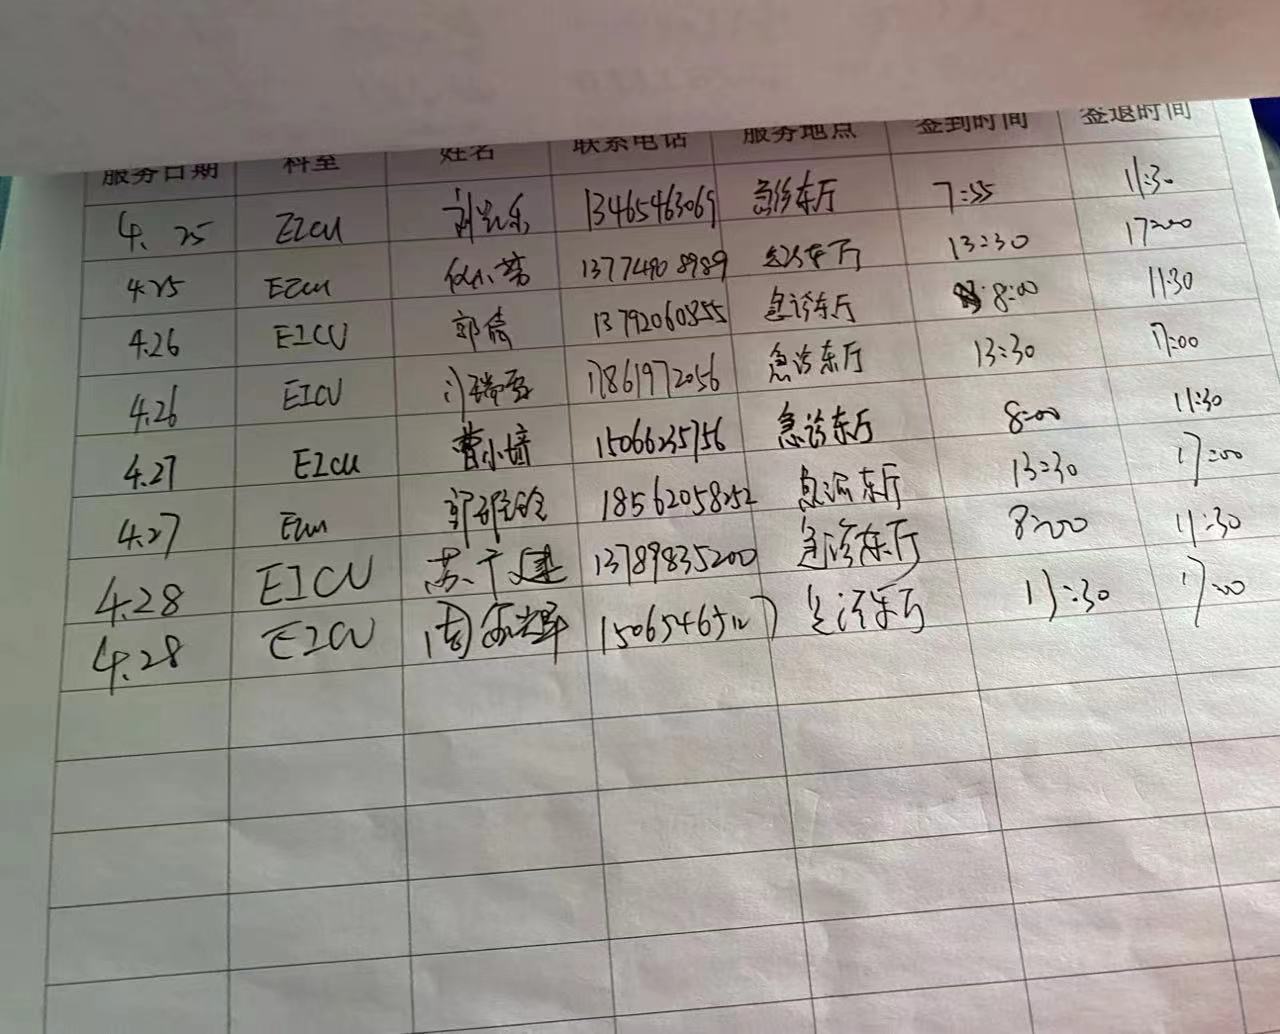 服务日期 科室 姓名 联系电话 服务地点 签到时间 签退时间
4.25 EICU 13465463069 急诊东厅 7:55 11:30
4.25 EICU 13774908989 急诊东厅 13:30 17:00
4.26 EICU 郭倩 13792060855 急诊东厅 8:00 11:30
4.26 EICU 17861972056 急诊东厅 13:30 17:00
4.27 EICU 曹小培 15066235756 急诊东厅 8:00 11:30
4.27 EICU 18562058252 急诊东厅 13:30 17:00
4.28 EICU 苏于建 13789835200 急诊东厅 8:00 11:30
4.28 EICU 急诊东厅 13:30 17:00